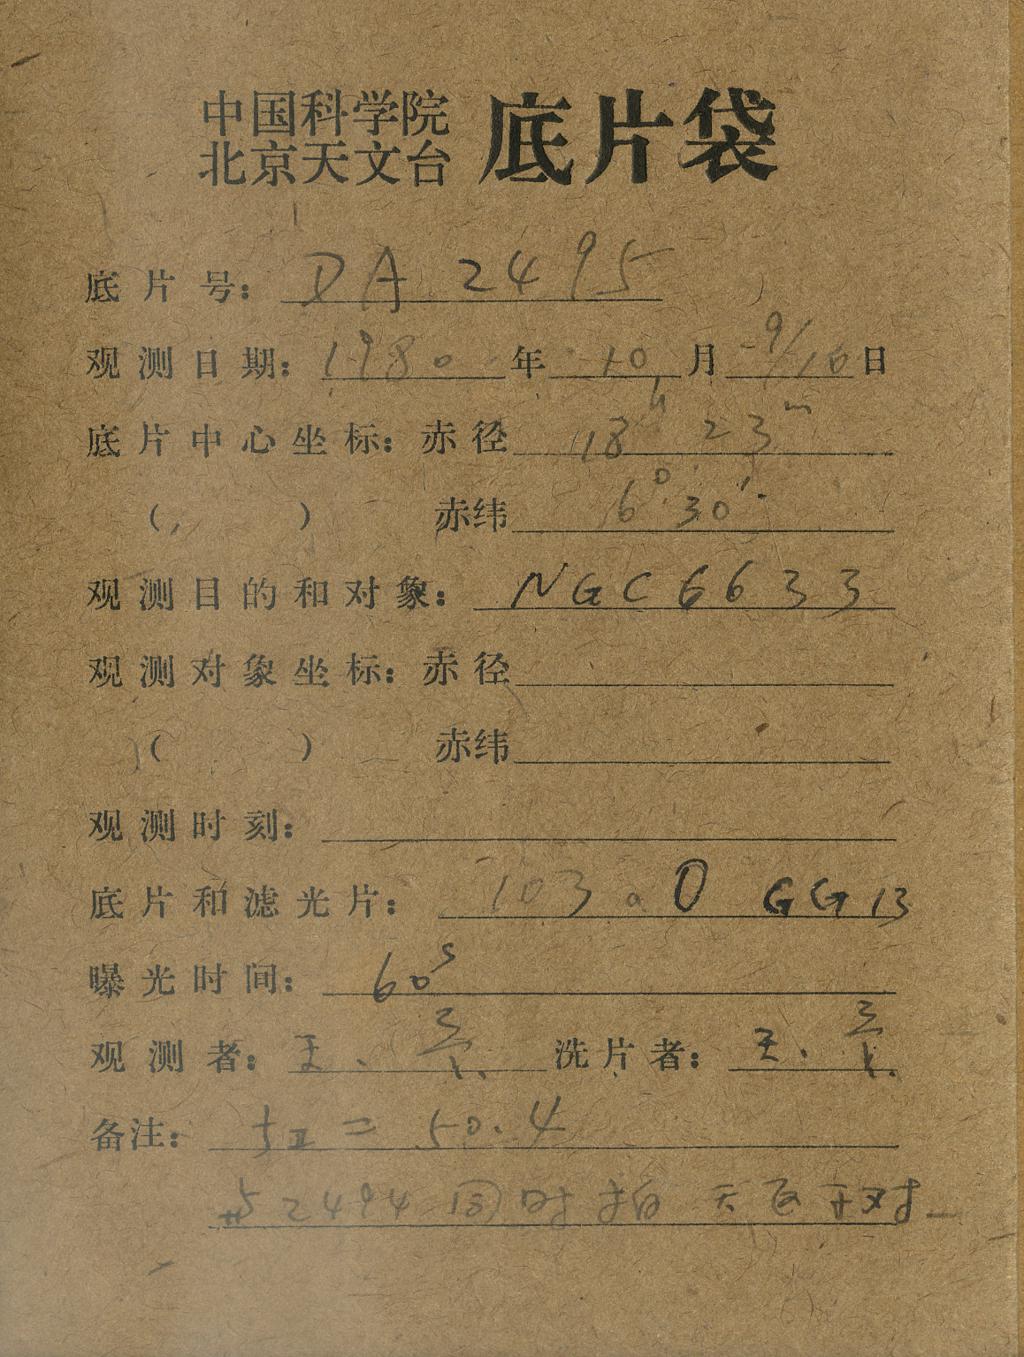 中国科学院
北京天文台 底片袋
底片号: DA 2495
观测日期: 1980年 10月 9/10日
底片中心坐标: 赤径 18h 23m
( ) 赤纬 6°30′
观测目的和对象: NGC 6633
观测对象坐标: 赤径
( ) 赤纬
观测时刻:
底片和滤光片: 103aO GG13
曝光时间: 60s
观测者: 王. 洗片者: 王.
备注: = 50.4
2494 同时拍 天区 对